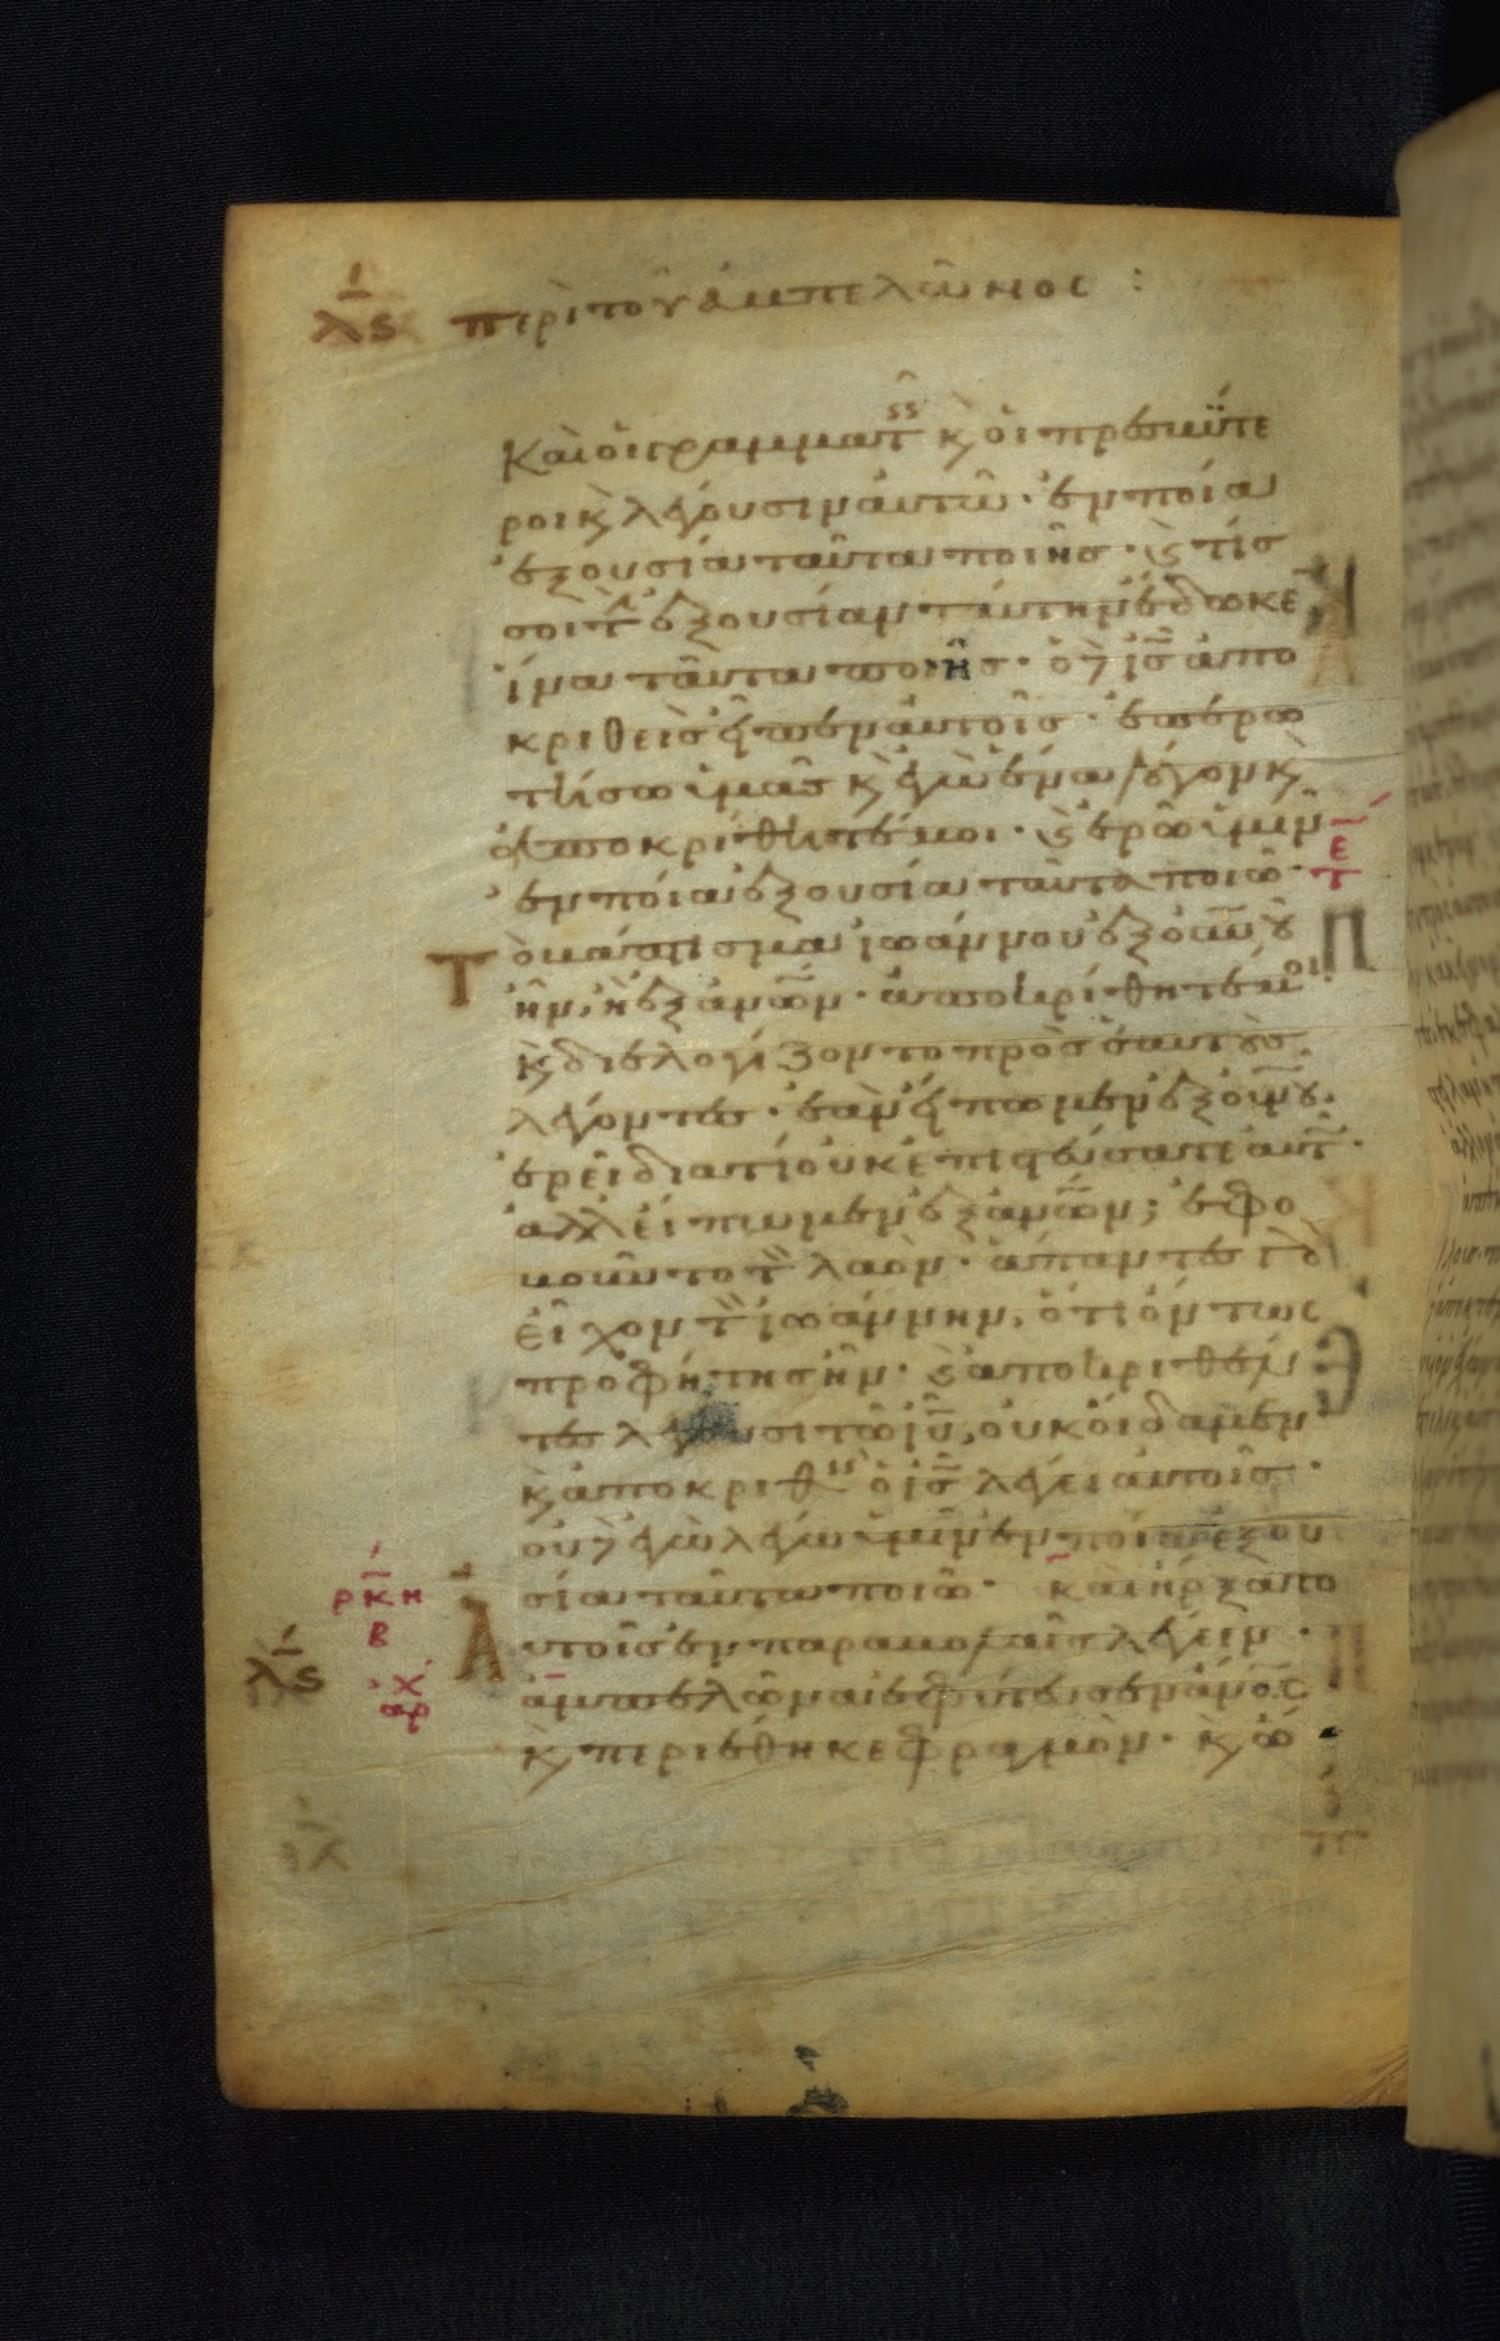 λϛ περὶ τοῦ ἀμπελῶνος :
Καὶ οἱ γραμματ κ οἱ πρεσβύτε
ροι κ λέγουσιν αὐτῶ · ἐν ποία
ἐξουσία ταῦτα ποιῆς · κ τίς
σοι τ ἐξουσίαν ταύτην ἔδωκε
ἵνα ταῦτα ποιῆς · ὁ δὲ ις ἀπο
κριθεὶς εἶπεν αὐτοῖς · ἐπερω
τήσω ὑμᾶς κ ἐγὼ ἕνα λόγον κ
ἀποκρίθητέ μοι · κ ἐρῶ ὑμῖν
ἐν ποία ἐξουσία ταῦτα ποιῶ ·
Τὸ βάπτισμα ἰωάννου ἐξ ουνου
ἦν, ἢ ἐξ ανων · ἀποκρίθητέ μοι ·
κ διελογίζοντο πρὸς ἑαυτοὺς
λέγοντες · ἐὰν εἴπωμεν ἐξ ουνου ·
ἐρεῖ διατί οὐκ ἐπιστεύσατε αὐτ ·
ἀλλ εἴπωμεν ἐξ ανων ; ἐφο
βοῦντο τ λαόν · ἅπαντες γὰρ
εἶχον τ ἰωάννην, ὅτι ὄντως
προφήτης ἦν · κ αποκριθέν
τες λέγουσι τῶ ιυ, οὐκ οἴδαμεν
κ ἀποκριθ ὁ ις λέγει αὐτοῖς ·
οὐδὲ ἐγὼ λέγω ὑμῖν ἐν ποία ἐξου
σία ταῦτα ποιῶ · Καὶ ἤρξατο
Αυτοῖς ἐν παραβολαῖς λέγειν ·
ἀμπελῶνα ἐφύτευσεν ανος
κ περιέθηκε φραγμὸν · κ ὤ
ε
τ
ρκη
β
λϛ